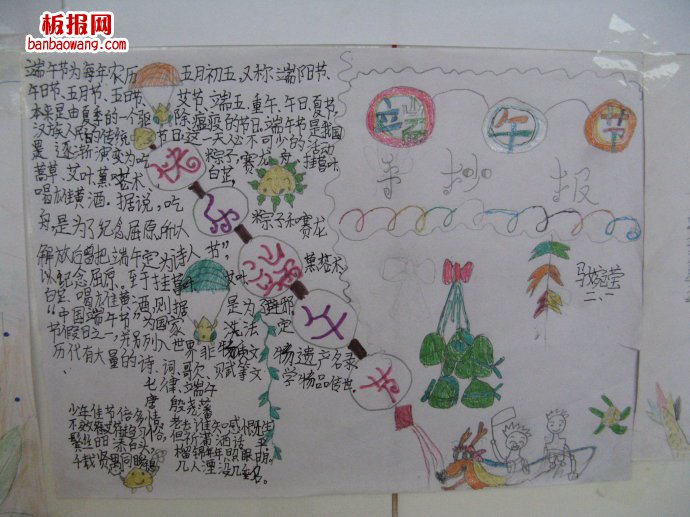 板报网
banbaowang.com
端午节为每年农历 五月初五,又称端阳节、
午日节、五月节、五日节、 艾节、端五、重午、午日、夏节,
本来是由夏季的一个驱 除瘟疫的节日,端午节是我国
汉族人民的传统 节日,这一天必不可少的活动
逐渐演变为吃 粽子,赛龙舟,挂菖蒲
蒿草、艾叶薰苍术、 白芷,
喝雄黄酒。据说,吃 粽子和赛龙
舟,是为了纪念屈原,所以
解放后曾把端午定为诗人 节”,
以纪念屈原。至于挂菖蒲 艾叶 薰苍术
白芷、喝雄黄酒,则据 是为 避邪
“中国端午节”为国家 法 定
节假日之一,并另列入世界非物质文 遗产名录
历代有大量的诗、词、歌、赋等文 学 物品传世
快
乐
端
午
节
七律、端午
唐 殷尧藩
少年佳节倍多情
老去谁知感慨生
不效艾符趋习俗
但祈蒲酒话 平
鬓丝日 添白
榴锦年年照眼明
千载贤愚同瞬
几人湮没几 名。
端 午 节
手 抄 报
二、一